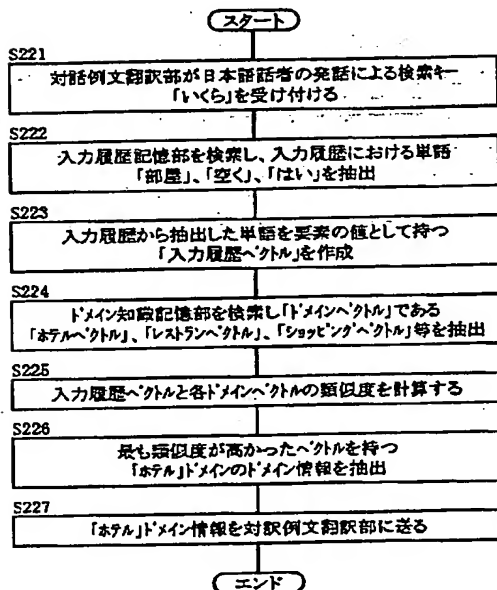 スタート
S221
対話例文翻訳部が日本語話者の発話による検索キー
「いくら」を受け付ける
S222
入力履歴記憶部を検索し、入力履歴における単語
「部屋」、「空く」、「はい」を抽出
S223
入力履歴から抽出した単語を要素の値として持つ
「入力履歴ベクトル」を作成
S224
ドメイン知識記憶部を検索し「ドメインベクトル」である
「ホテルベクトル」、「レストランベクトル」、「ショッピングベクトル」等を抽出
S225
入力履歴ベクトルと各ドメインベクトルの類似度を計算する
S226
最も類似度が高かったベクトルを持つ
「ホテル」ドメインのドメイン情報を抽出
S227
「ホテル」ドメイン情報を対訳例文翻訳部に送る
エンド